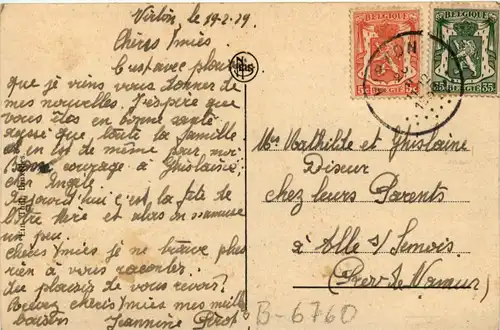 Virton, le 19-2-39.
Chères Amies
C'est avec plaisir
que je viens vous donner de
mes nouvelles. J'espère que
vous êtes en bonne santé
aussi que toute la famille
et on est de même pour moi.
Bon courage à Ghislaine
chez Angèle.
Aujourd'hui c'est la fête de
notre Mère et alors on s'amuse
un peu.
Chères Amies je ne trouve plus
rien à vous raconter.
Au plaisir de vous revoir.
Bonnes chères Amies mes meilleurs
baisers
Jeannine Pirot
BELGIQUE
BELGIË
35
35
Melles Mathilde et Ghislaine
Diseur
chez leurs Parents
à Alle s/ Semois
(Prov. de Namur)
B-6760